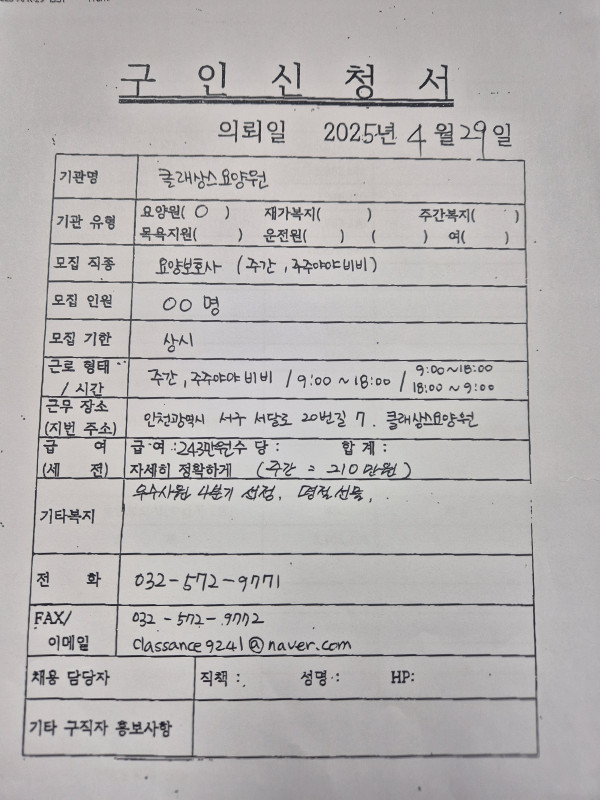 구 인 신 청 서
의뢰일 2025년 4월 29일
기관명 클래상스요양원
기관 유형 요양원( O ) 재가복지( ) 주간복지( )
목욕지원( ) 운전원( ) ( ) 여( )
모집 직종 요양보호사 (주간, 주주야야비비)
모집 인원 00 명
모집 기한 상시
근로 형태 / 시간 주간, 주주야야비비 / 9:00 ~ 18:00 / 9:00~18:00
18:00 ~ 9:00
근무 장소
(지번 주소) 인천광역시 서구 서달로 20번길 7. 클래상스요양원
급 여 급여 : 243만원 수 당 : 합 계 :
(세 전) 자세히 정확하게 (주간 = 210만원)
기타복지 우수사원 4분기 선정, 명절선물,
전 화 032-572-9771
FAX/ 032-572-9772
이메일 classance9241@naver.com
채용 담당자 직책 : 성명 : HP:
기타 구직자 홍보사항